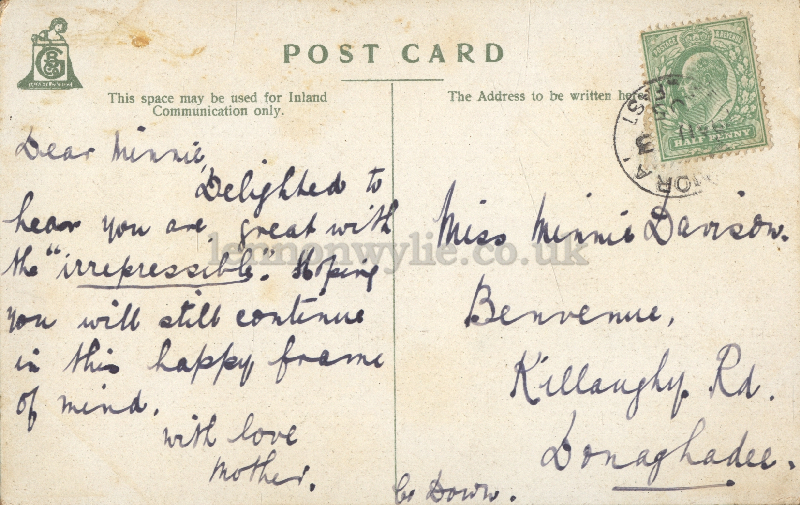 POST CARD
This space may be used for Inland
Communication only.
The Address to be written here
Dear Minnie,
Delighted to
hear you are great with
the "irrepressible". Hoping
you will still continue
in this happy frame
of mind.
with love
Mother.
Miss Minnie Davison.
Benvenue,
Killaughy Rd.
Donaghadee.
Co Down.
HALF PENNY
lennonwylie.co.uk